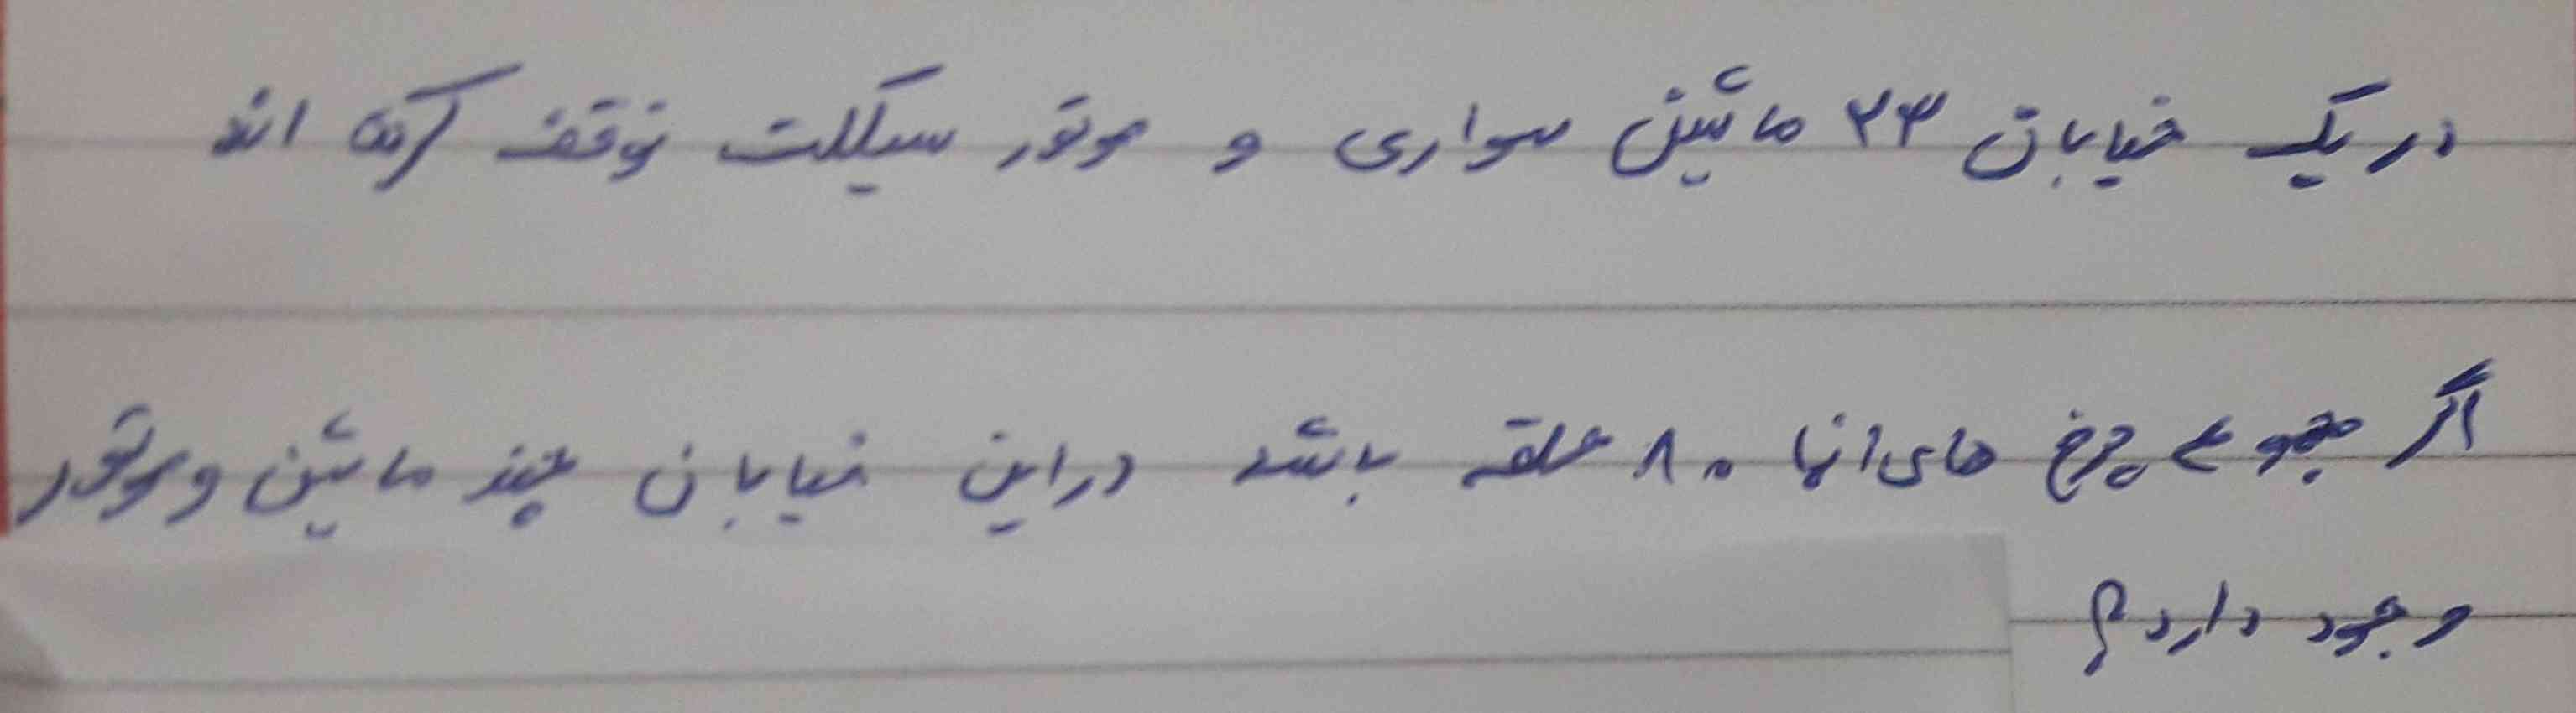 در یک خیابان ۲۳ ماشین سواری و موتور سیکلت توقف کرده اند
اگر مجموع چرخ های انها ۸۰ حلقه باشد در این خیابان چند ماشین و موتور
وجود دارد؟